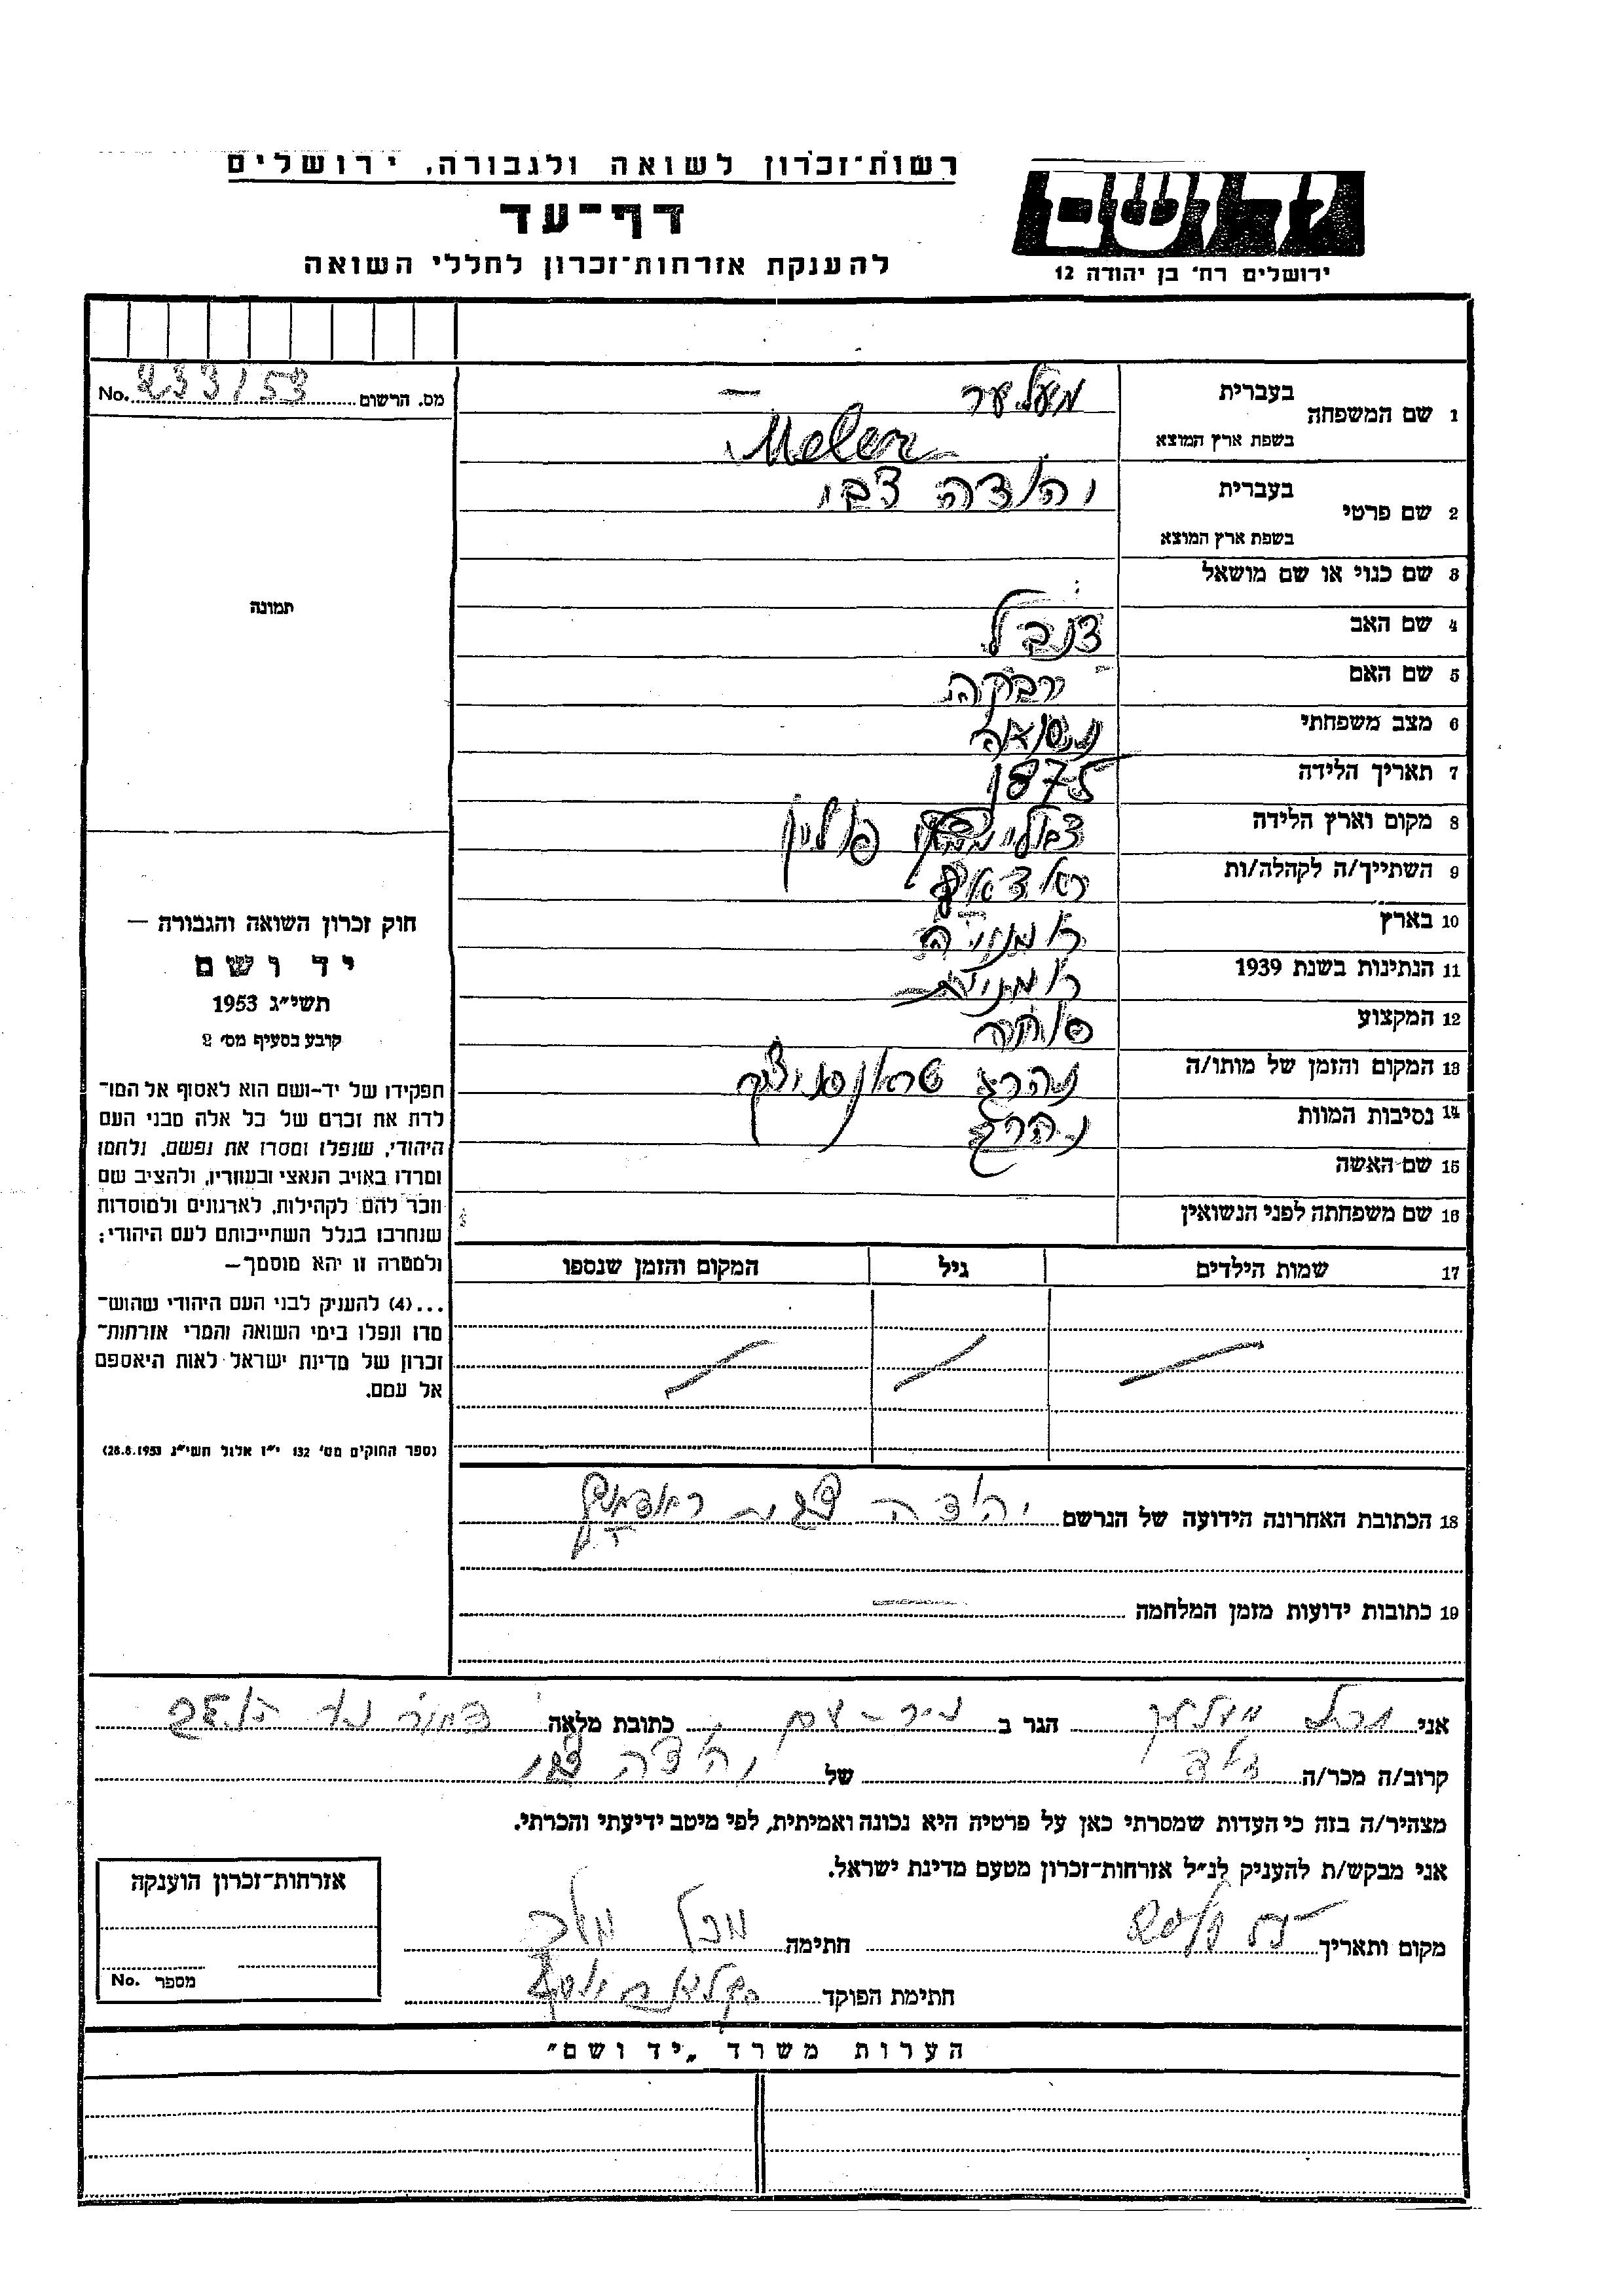 רשות־זכרון לשואה ולגבורה, ירושלים
דף־עד
להענקת אזרחות־זכרון לחללי השואה
ידושם
ירושלים רח' בן יהודה 12
מס. הרשום 233/53 No.
1 שם המשפחה בעברית מעלער
בשפת ארץ המוצא Meler
2 שם פרטי בעברית יהודה צבי
בשפת ארץ המוצא
3 שם כנוי או שם מושאל
4 שם האב
5 שם האם רבקה
6 מצב משפחתי נשואה
7 תאריך הלידה 1875
8 מקום וארץ הלידה פולין
9 השתייך/ה לקהלה/ות ראדאוץ
10 בארץ רומניה
11 הנתינות בשנת 1939 רומנית
12 המקצוע סוחר
13 המקום והזמן של מותו/ה נהרג טראנסניסט
14 נסיבות המוות נהרג
15 שם האשה
16 שם משפחתה לפני הנשואין
17 שמות הילדים גיל המקום והזמן שנספו
18 הכתובת האחרונה הידועה של הנרשם יהודה
19 כתובות ידועות מזמן המלחמה
תמונה
חוק זכרון השואה והגבורה —
יד ושם
תשי"ג 1953
קובע בסעיף מס' 2
תפקידו של יד־ושם הוא לאסוף אל המו־
לדת את זכרם של כל אלה מבני העם
היהודי, שנפלו ומסרו את נפשם, נלחמו
ומרדו באויב הנאצי ובעוזריו, ולהציב שם
וזכר להם לקהילות, לארגונים ולמוסדות
שנחרבו בגלל השתייכותם לעם היהודי;
ולמטרה זו יהא מוסמך—
...(4) להעניק לבני העם היהודי שהוש־
מדו ונפלו בימי השואה והמרי אזרחות־
זכרון של מדינת ישראל לאות היאספם
אל עמם.
(ספר החוקים מס' 132 י"ז אלול תשי"ג 28.8.1953)
אני הגר ב כתובת מלאה
קרוב/ה מכר/ה של יהודה צבי
מצהיר/ה בזה כי העדות שמסרתי כאן על פרטיה היא נכונה ואמיתית, לפי מיטב ידיעתי והכרתי.
אני מבקש/ת להעניק לנ"ל אזרחות־זכרון מטעם מדינת ישראל.
מקום ותאריך חתימה
חתימת הפוקד
אזרחות־זכרון הוענקה
מספר No.
הערות משרד „יד ושם"